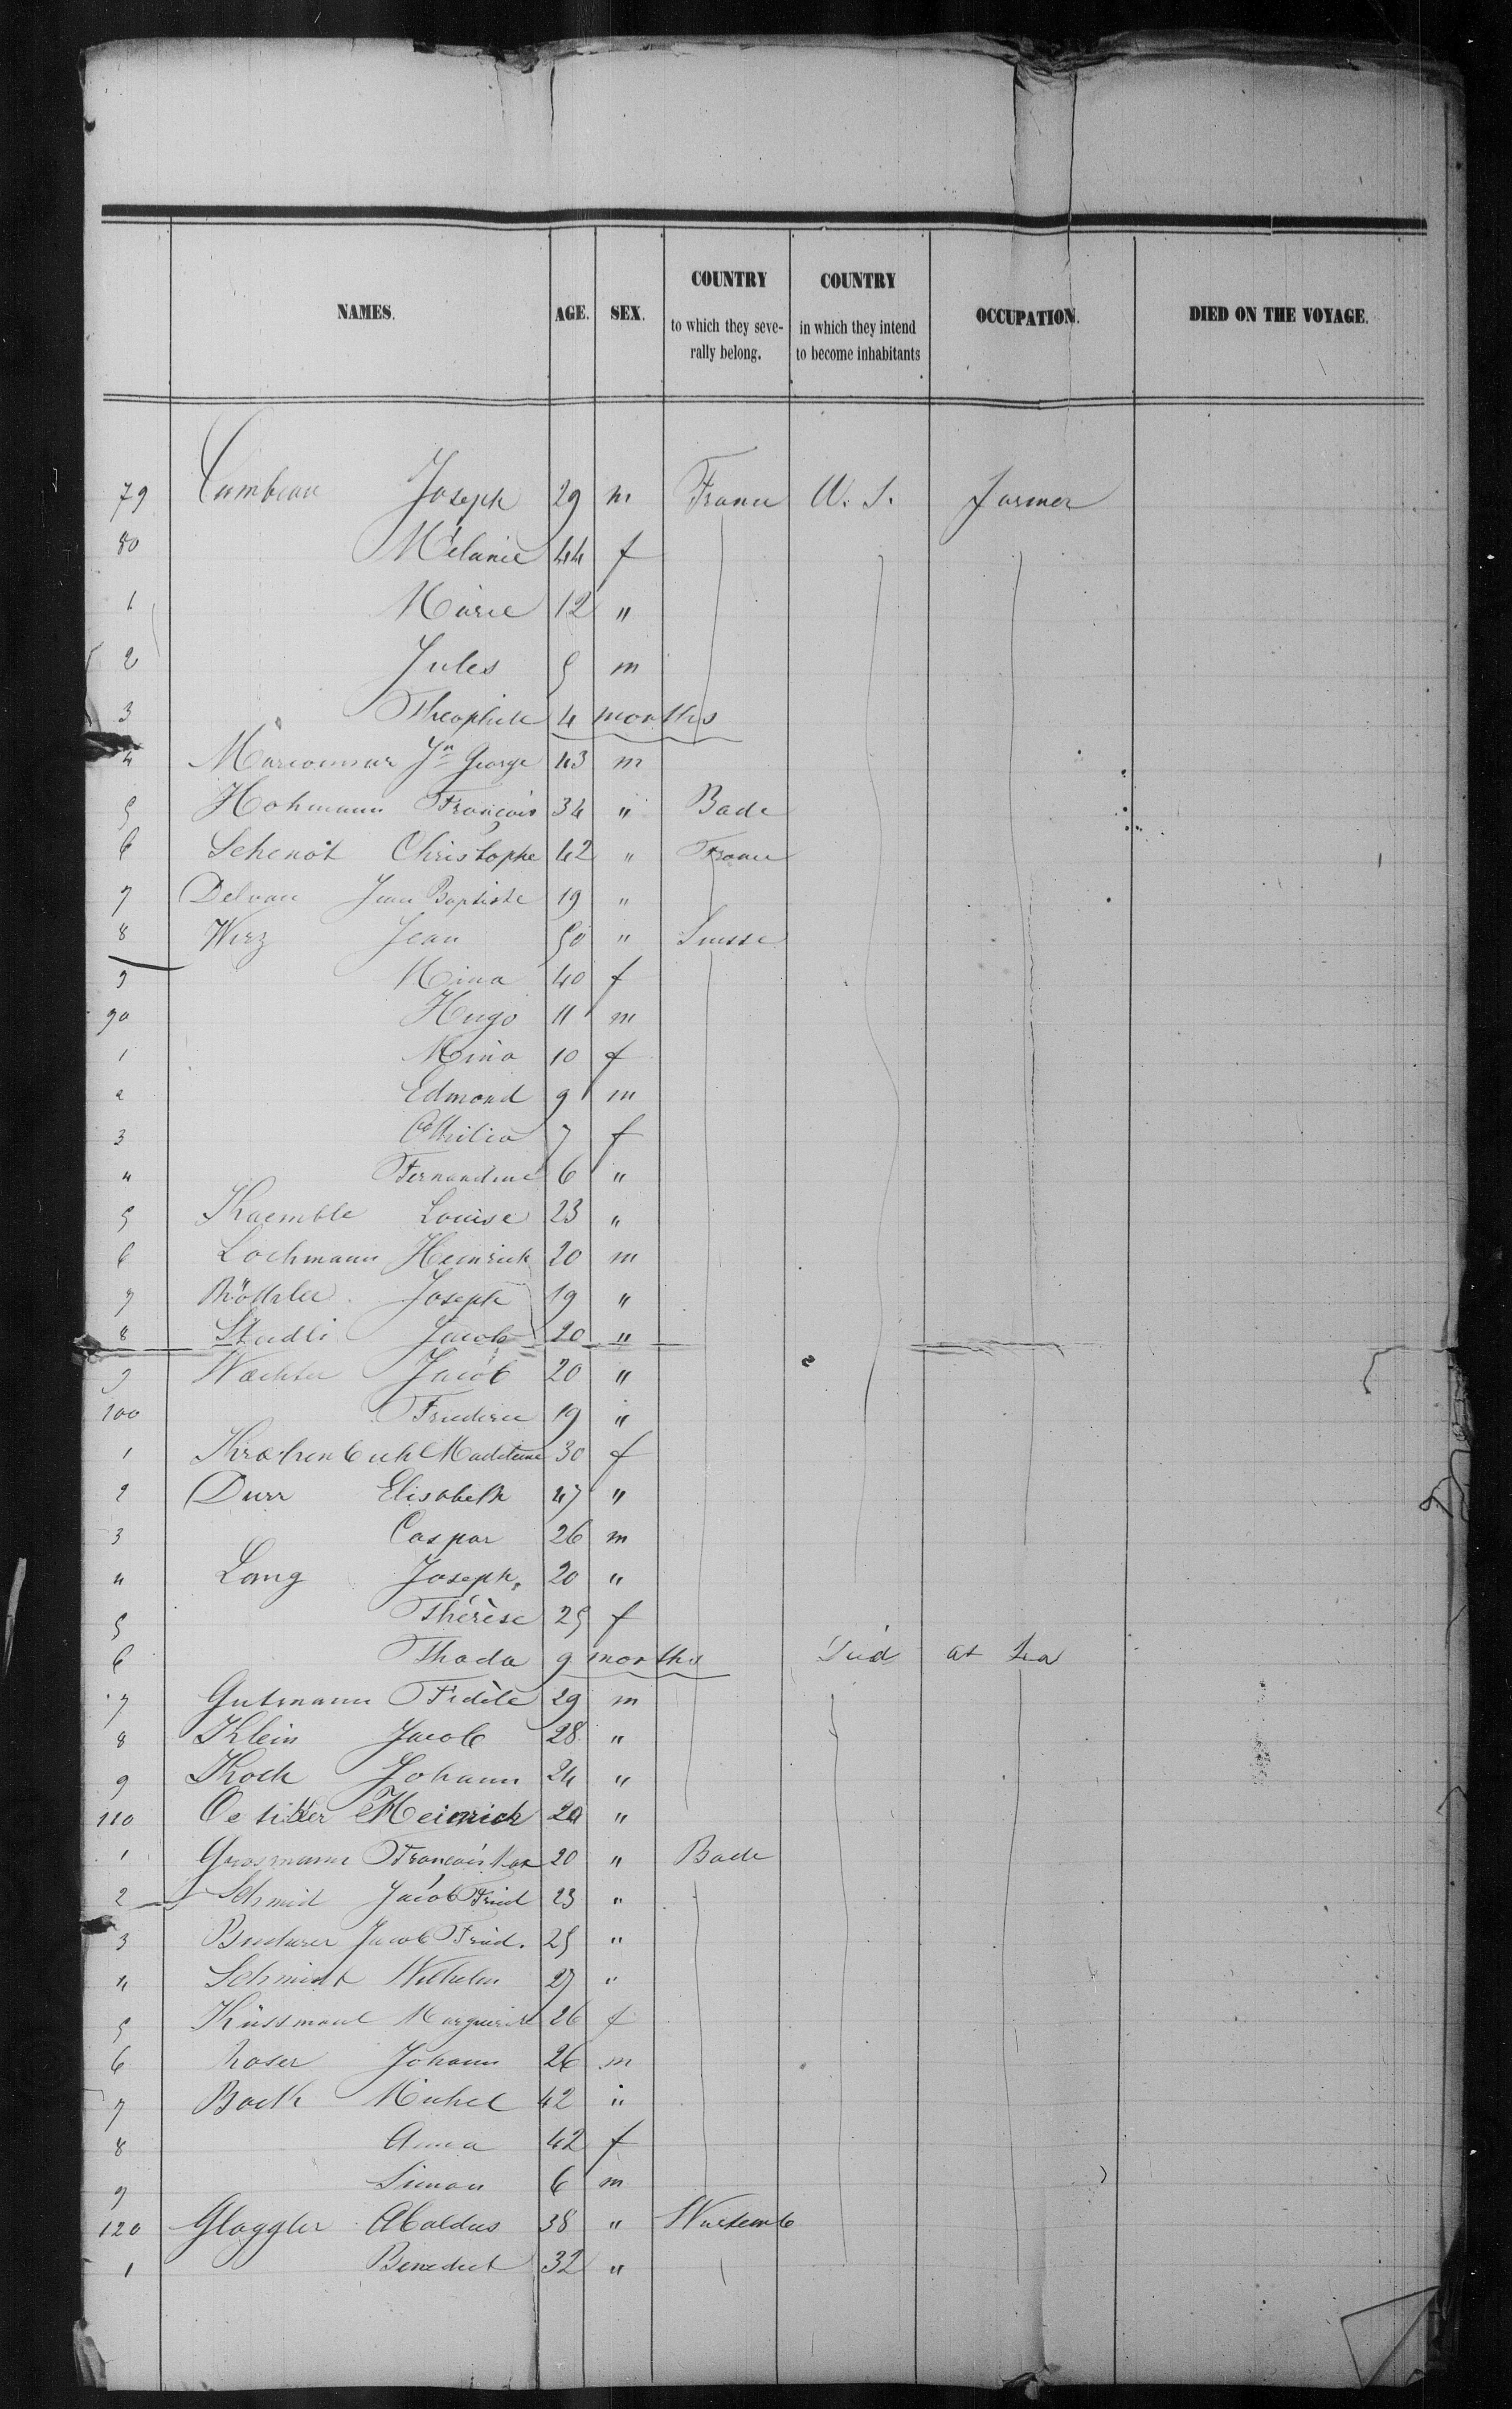 NAMES. AGE. SEX. COUNTRY to which they seve- rally belong. COUNTRY in which they intend to become inhabitants OCCUPATION. DIED ON THE VOYAGE.
79 Cumbeau Joseph 29 m France U. S. farmer
80 Mélanie 44 f
1 Marie 12 "
2 Jules 5 m
3 Théophile 4 months
4 Jn George 43 m
5 Hohmann François 34 " Bade
6 Schenot Christophe 42 " France
7 Delvau Jean Baptiste 19 "
8 Wirz Jean 50 " Suisse
9 Mina 40 f
90 Hugo 11 m
1 Mina 10 f
2 Edmond 9 m
3 Othilia 7 f
4 Fernandine 6 "
5 Kaemble Louise 23 "
6 Lochmann Heinrich 20 m
7 Joseph 19 "
8 Studli Jacob 20 "
9 Wachter Jacob 20 "
100 Frederic 19 "
1 Krahenbuhl Madeleine 30 f
2 Durr Elisabeth 47 "
3 Caspar 26 m
4 Lang Joseph 20 "
5 Thérèse 25 f
6 Thada 9 months Died at Sea
7 Gutmann Fidèle 29 m
8 Klein Jacob 28 "
9 Koch Johann 24 "
110 Oetiker Heinrich 24 "
1 Grosmann François 20 " Bade
2 Schmid Jacob Fried 23 "
3 Jacob Fried. 25 "
4 Schmidt Wilhelm 27 "
5 Küssmaul Marguerite 26 f
6 Johann 26 m
7 Michel 42 "
8 Anna 42 f
9 Simon 6 m
120 Gloggler 38 " Wurtemb
1 Benedict 32 "